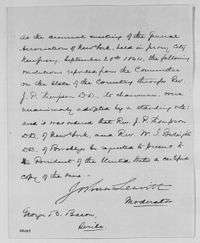 At the annual meeting of the General
Association of New York, held in Perry City
September 20th 1861, the following
resolutions reported from the Committee
on the State of the Country through Rev.
J. P. Thompson D.D. its chairman, were
unanimously adopted by a standing vote:
and it was ordered that Rev. J. P. Thompson
D.D. of New York, and Rev. W. I.
D.D. of Brooklyn be requested to present to
the President of the United States a certified
copy of the same—
Joshua Leavitt
Moderator
George B. Bacon
Scribe